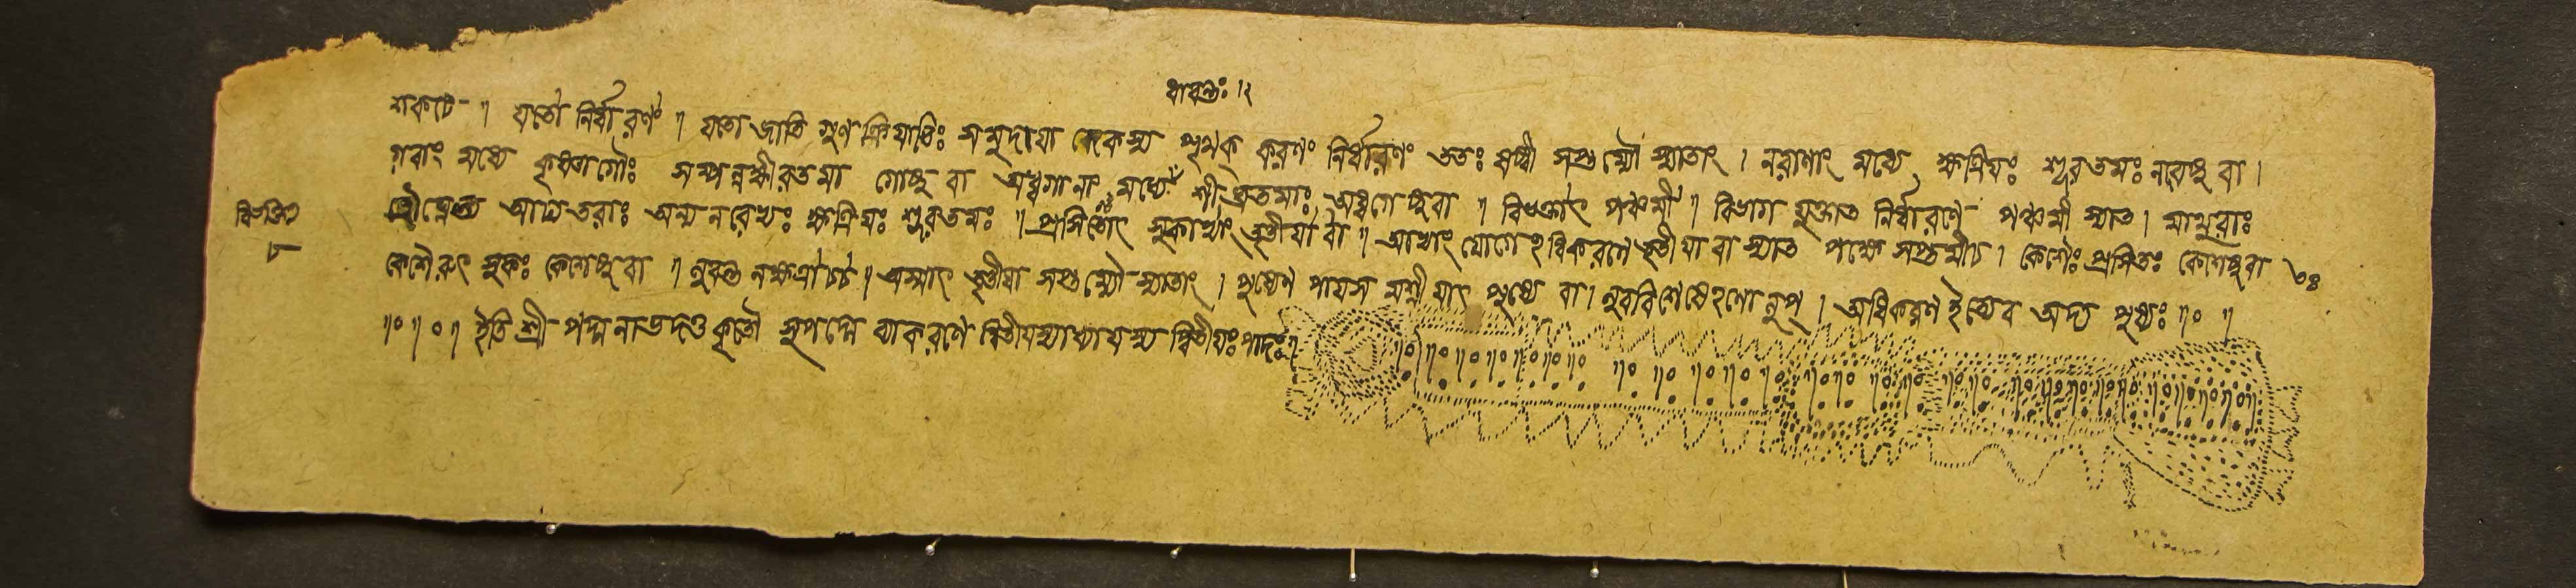 ধাবন্তঃ ।২
শকটে ॥ যতো নির্ধারণং ॥ যতো জাতি গুণ ক্রিয়াদিঃ সমুদায়া দেকস্য পৃথক্ করণং নির্ধারণং ততঃ ষষ্ঠী সপ্তম্যৌ স্যাতাং । নরাণাং মধ্যে ক্ষত্রিয়ঃ শূরতমঃ নরেষু বা ।
গবাং মধ্যে কৃষ্ণা গৌঃ সম্পন্নক্ষীরতমা গোষু বা অধ্বগানাং মধ্যে শীঘ্রতমাঃ অধ্বগেষুবা ॥ বিভক্তাৎ পঞ্চমী ॥ বিভাগ যুক্তাত নির্ধারণে পঞ্চমী স্যাত । মাথুরাঃ
আঢ্যতরাঃ অন্য নরেভ্যঃ ক্ষত্রিয়ঃ শূরতমঃ ॥ প্রসিতোৎ সুকাভ্যাং তৃতীয়া বা ॥ আভ্যাং যোগেঽধিকরণে তৃতীয়া বা স্যাত পক্ষে সপ্তমীচ । কেশৈঃ প্রসিতঃ কেশেষুবা
কেশৈরুৎ সুকঃ কেশেষুবা ॥ লুবন্ত নক্ষত্রাচ্চ ॥ অস্মাৎ তৃতীয়া সপ্তম্যৌ স্যাতাং । পুষ্যেণ পায়স মশ্নীয়াৎ পুষ্যে বা । লুববিশেষেঽণো লুপ্ । অধিকরণ ইত্যেব অদ্য পুষ্যঃ ॥০॥
॥০॥০॥ ইতি শ্রী পদ্মনাভদত্ত কৃতৌ সুপদ্মে ব্যাকরণে দ্বিতীয়স্যাধ্যায়স্য দ্বিতীয়ঃ পাদঃ ॥
৮
৩৪